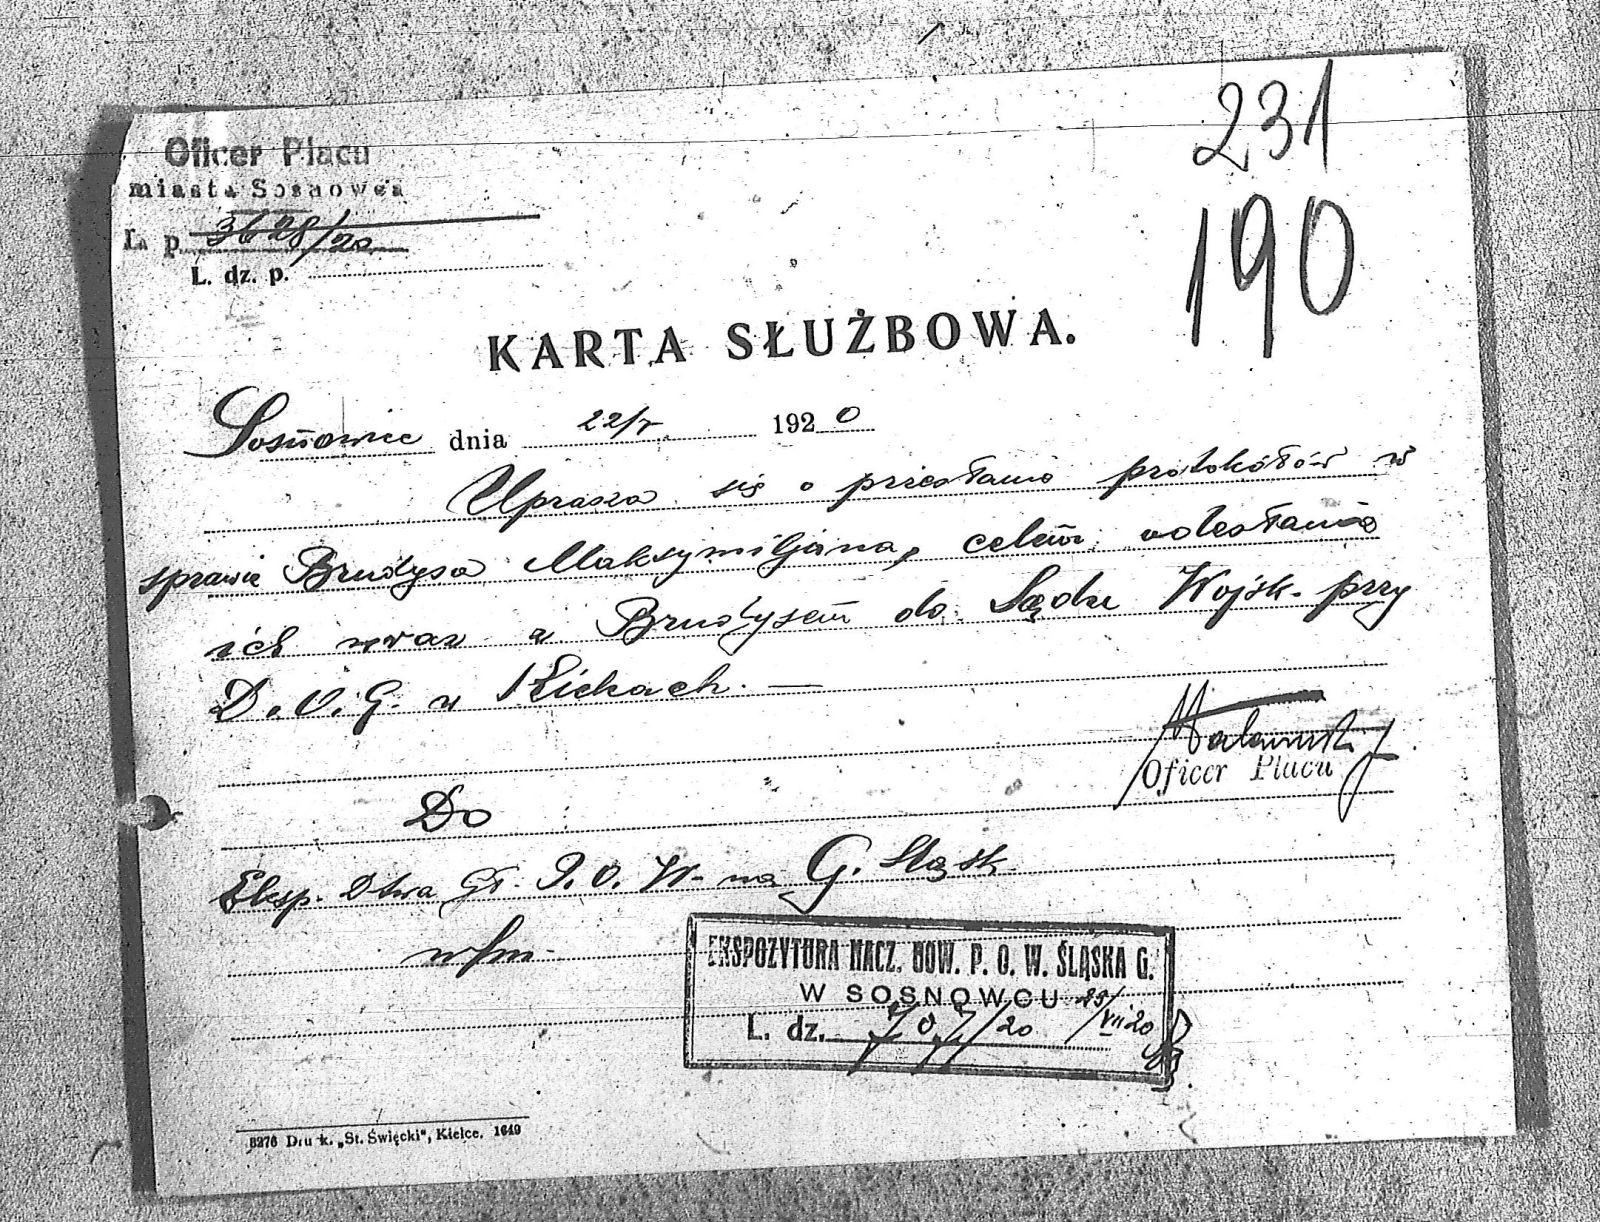 231
190
Oficer Placu
miasta Sosnowca
L. p. 3628/20
L. dz. p.
KARTA SŁUŻBOWA.
Sosnowiec dnia 22/V 1920
Uprasza się o przesłanie protokółów w
sprawie Brudysa Maksymiljana, celem odesłania
ich wraz z Brudysem do Sądu Wojsk. przy
D. O. G. w Kielcach. —
Oficer Placu
Do
Eksp. Dtwa Gł. P. O. W. na G. Śląsk
w/m
EKSPOZYTURA NACZ. DOW. P. O. W. ŚLĄSKA G.
W SOSNOWCU
L. dz. 707/20 25/VII 20
8276 Druk. „St. Święcki", Kielce. 1649